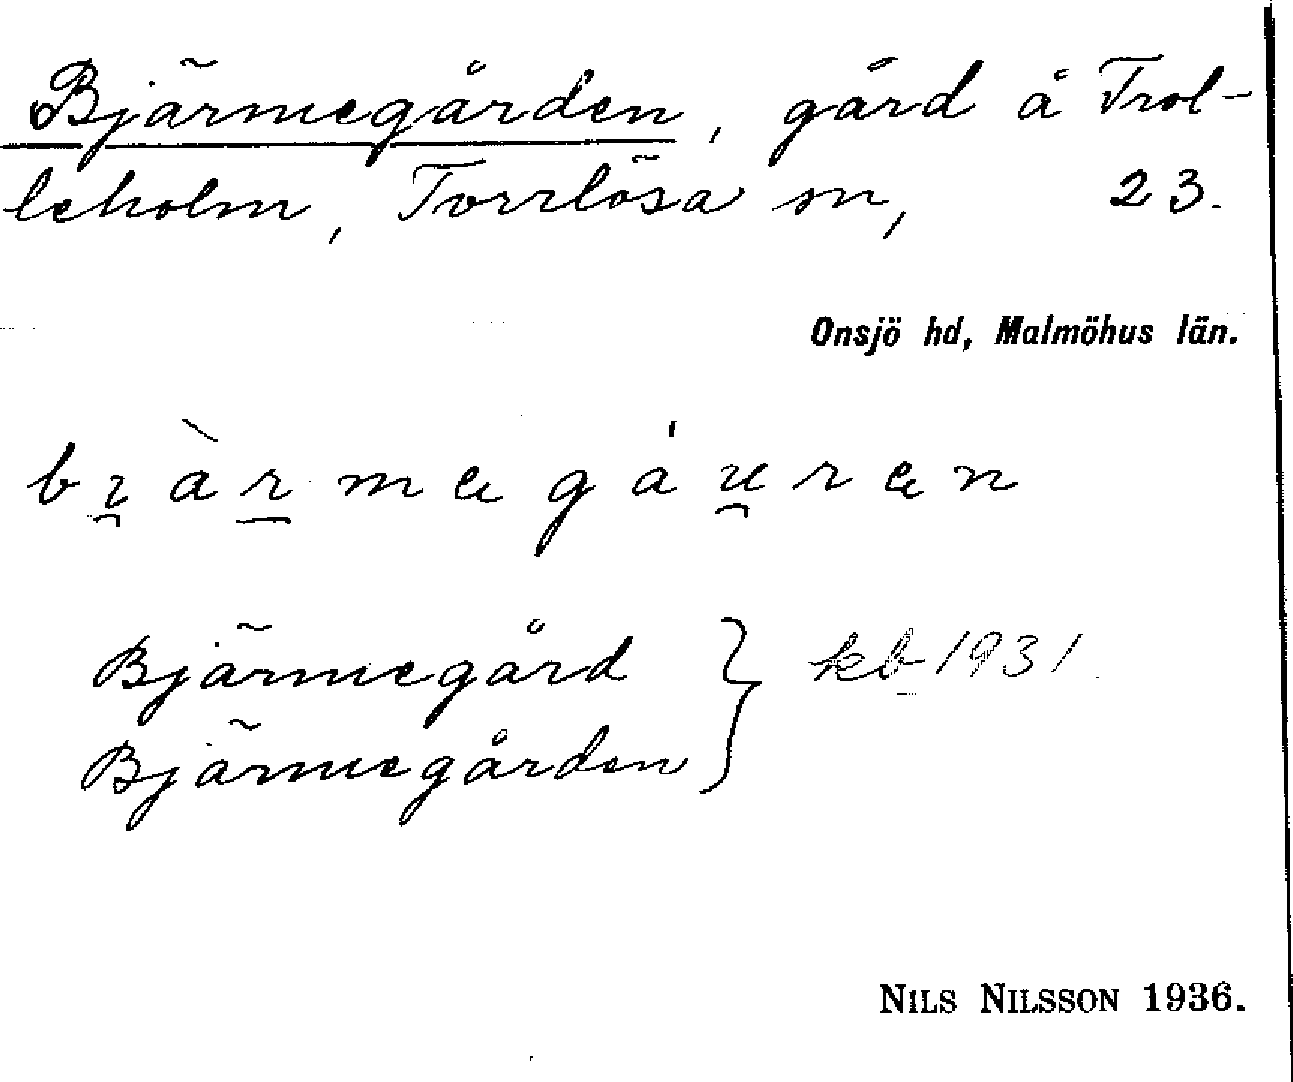 Bjärmegården, gård å Trol-
leholm, Torrlösa sn, 23.
Onsjö hd, Malmöhus län.
bi̯àr̲mɐgáu̯rɐn
Bjärmegård } kb 1931
Bjärmegården
NILS NILSSON 1936.